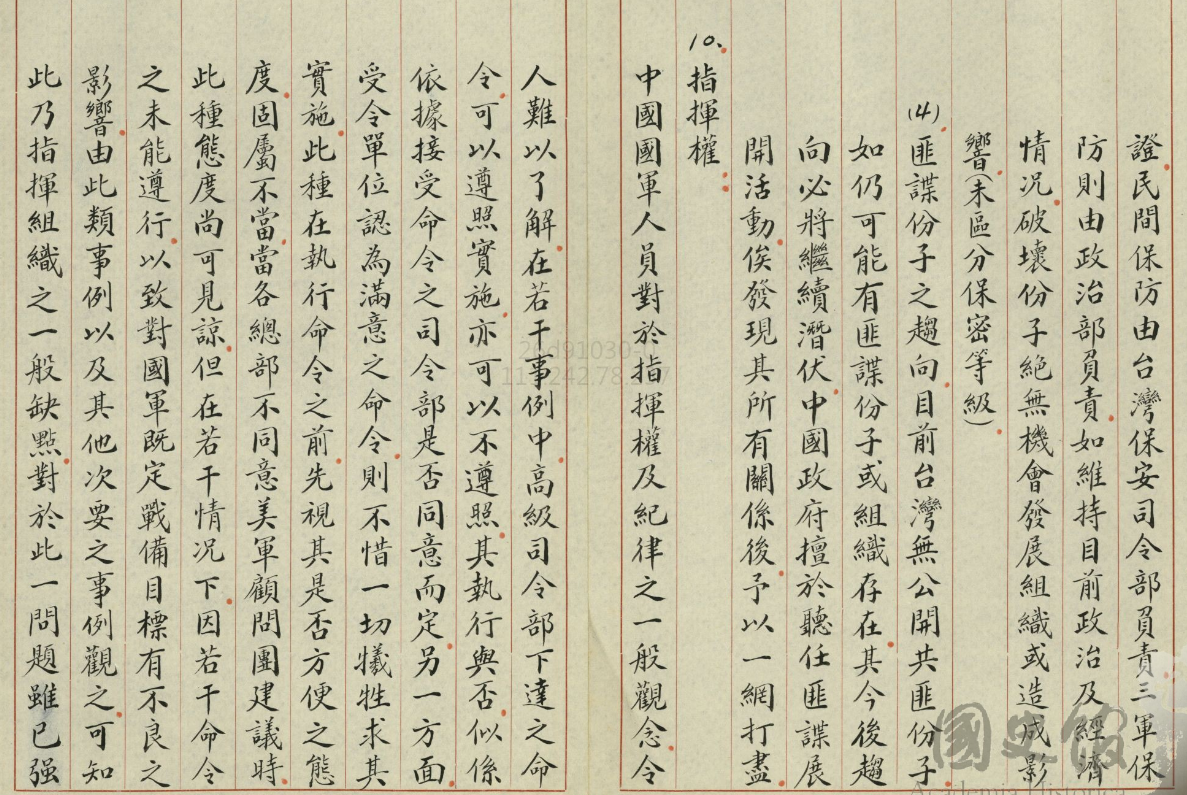 證民間保防由台灣保安司令部負責三軍保
防則由政治部負責如維持目前政治及經濟
情况破壞份子絕無機會發展組織或造成影
響(未區分保密等級)
(4)匪諜份子之趨向目前台灣無公開共匪份子
如仍可能有匪諜份子或組織存在其今後趨
向必將繼續潛伏中國政府擅於聽任匪諜展
開活動俟發現其所有關係後予以一網打盡
10、指揮權：
中國國軍人員對於指揮權及紀律之一般觀念令
人難以了解在若干事例中高級司令部下達之命
令可以遵照實施亦可以不遵照其執行與否似係
依據接受命令之司令部是否同意而定另一方面
受令單位認為滿意之命令則不惜一切犧牲求其
實施此種在執行命令之前先視其是否方便之態
度固屬不當當各總部不同意美軍顧問團建議時
此種態度尚可見諒但在若干情况下因若干命令
之未能遵行以致對國軍既定戰備目標有不良之
影響由此類事例以及其他次要之事例觀之可知
此乃指揮組織之一般缺點對於此一問題雖已强
國史館
Academia Historica